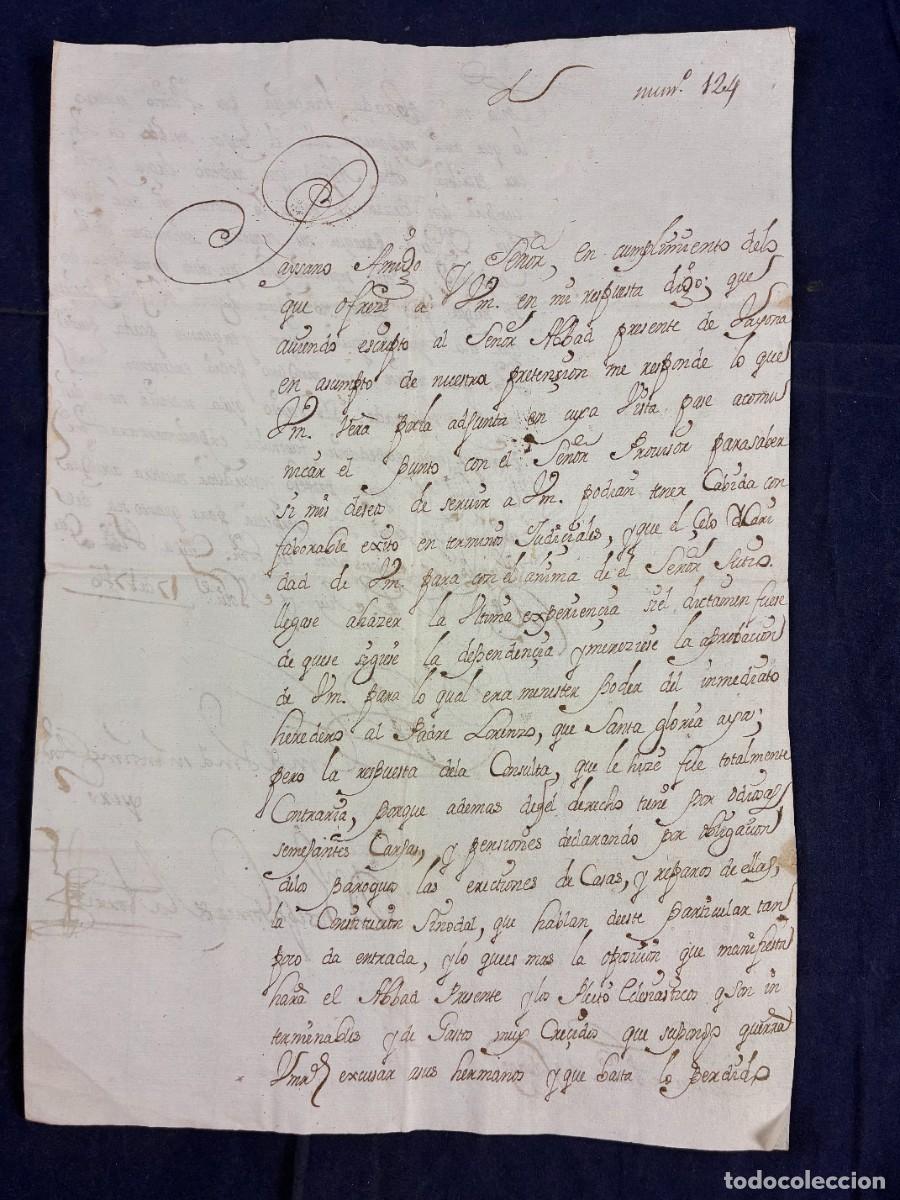 num.º 124
Paysano Amigo y Señor, en cumplimiento delo
que ofrezi a Vm. en mi respuesta digo; que
aviendo escripto al Señor Abbad presente de
en asumpto de nuestra pretension me responde lo que
Vm. verà porla adjunta en cuya vista pase acomu
nicar el punto con el Señor Provisor parasaber
si mis deseos de servir a Vm. podian tener Cabida con
faborable exito en terminos Judiciales, y que el Çelo y Cari
dad de Vm. para con el anima de el Señor
llegase ahazer la Ultima experiençia siel dictamen fuese
de quese siguiese la dependençia y mereziese la aprobacion
de Vm. para lo qual era menester Poder del inmediato
heredero al Padre Lorenzo, que Santa gloria aya;
pero la respuesta dela Consulta, que le hize fue totalmente
Contraria, porque ademas de qe el derecho tiene por odiosas
semejantes Cargas, y pensiones declarando por obligacion
delos Paroquos las erectiones de Casas, y reparos de ellas,
la Constitucion Sinodal, que hablan deeste particular tan
poco da entrada, ylo quees mas la oposicion que manifiesta
harà el Abbad Presente ylos Pleitos Eclesiasticos q son in
terminables y de Gasto muy Creçidos que supongo querrà
Vmd excusar asus hermanos y que basta lo Perdido
todocoleccion